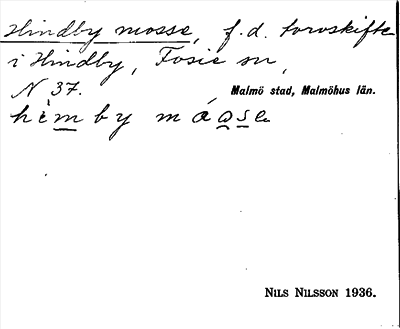 Hindby mosse, f.d. torvskifte
i Hindby, Fosie sn,
N 37. Malmö stad, Malmöhus län.
NILS NILSSON 1936.